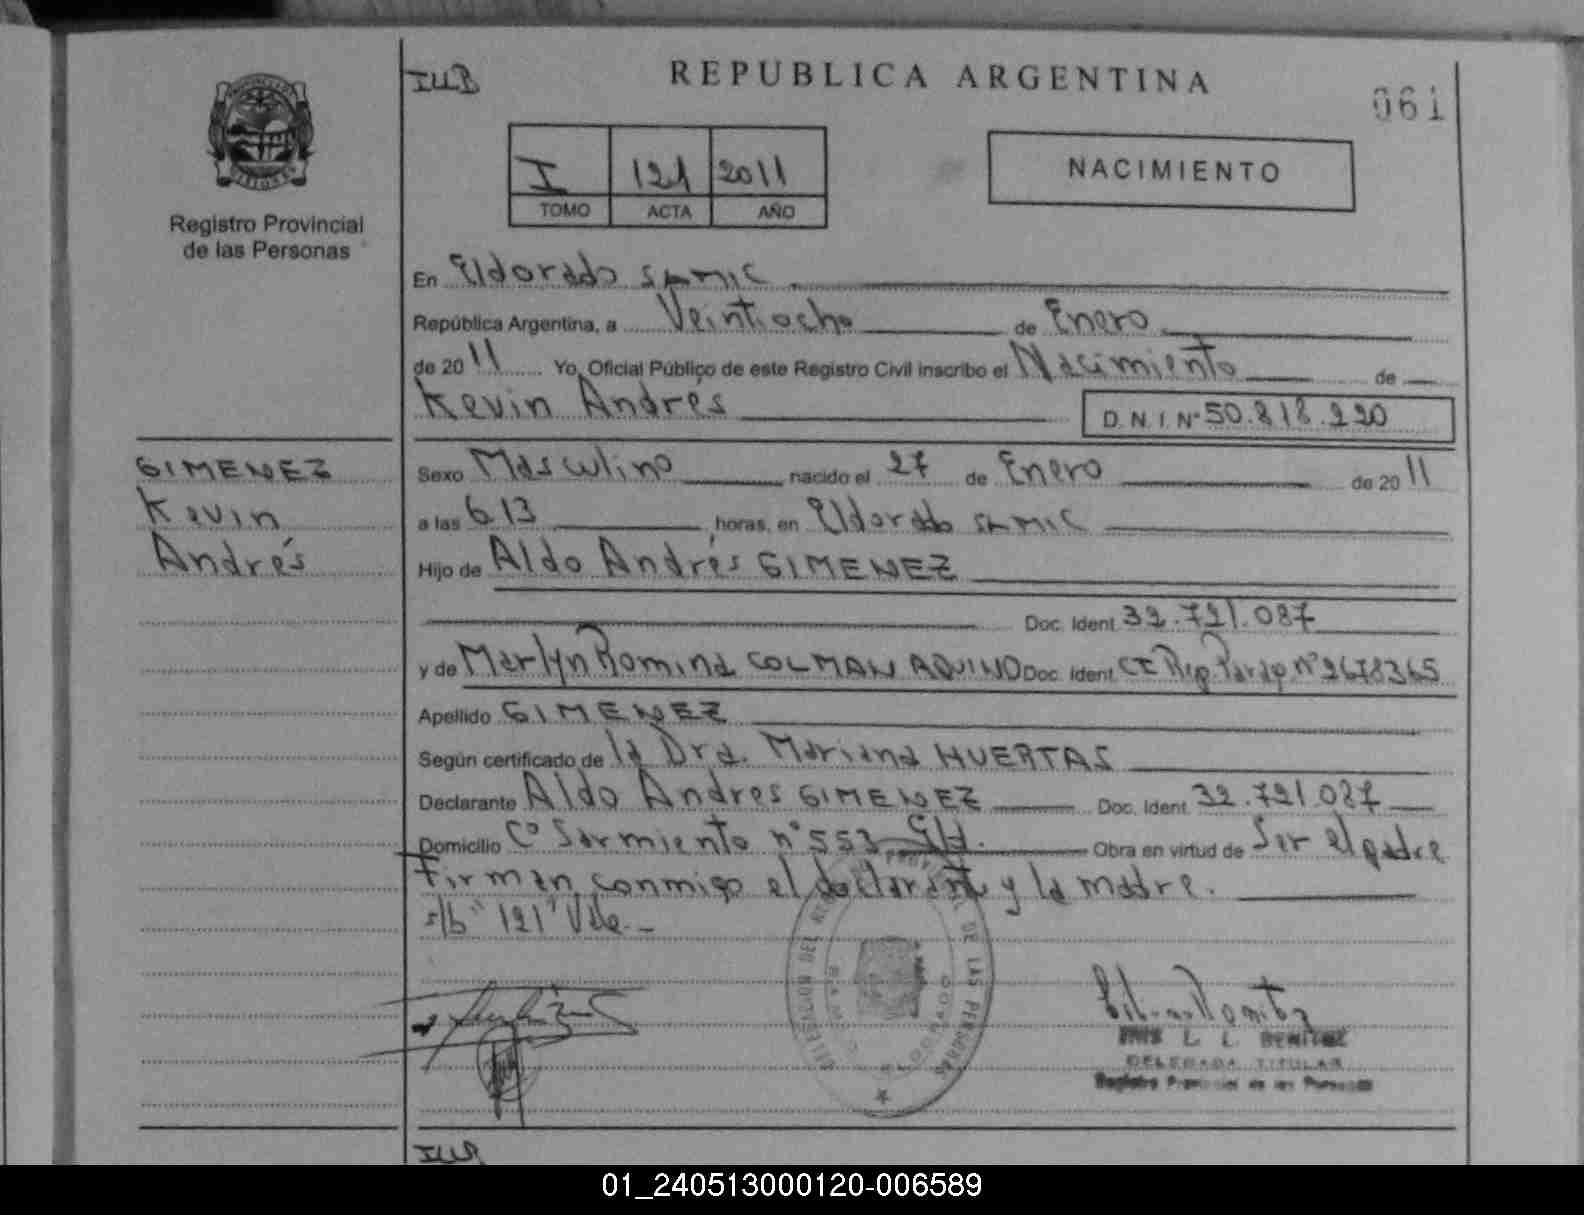 ILLB
REPUBLICA ARGENTINA
061
I 121 2011
TOMO ACTA AÑO
NACIMIENTO
Registro Provincial
de las Personas
En Eldorado SAMIC
República Argentina, a Veintiocho de Enero
de 2011 Yo, Oficial Público de este Registro Civil inscribo el Nacimiento de
Kevin Andrés
D. N. I. Nº 50.818.220
GIMENEZ
Kevin
Andrés
Sexo Masculino nacido el 27 de Enero de 2011
a las 613 horas, en Eldorado SAMIC
Hijo de Aldo Andrés GIMENEZ
Doc. Ident. 32.721.087
y de Marlyn Romina COLMAN AQUINO Doc. Ident. CI Rep. Parag. nº 2678365
Apellido GIMENEZ
Según certificado de la Dra. Mariana HUERTAS
Declarante Aldo Andres GIMENEZ Doc. Ident. 32.721.087
Domicilio Cº Sarmiento nº 553 Obra en virtud de Ser el padre
Firman conmigo el declarante y la madre.
s/b "121" Vale.
DE LAS PERSONAS
ELDORADO
L. L. BENITEZ
DELEGADA TITULAR
Registro Provincial de las Personas
01_240513000120-006589